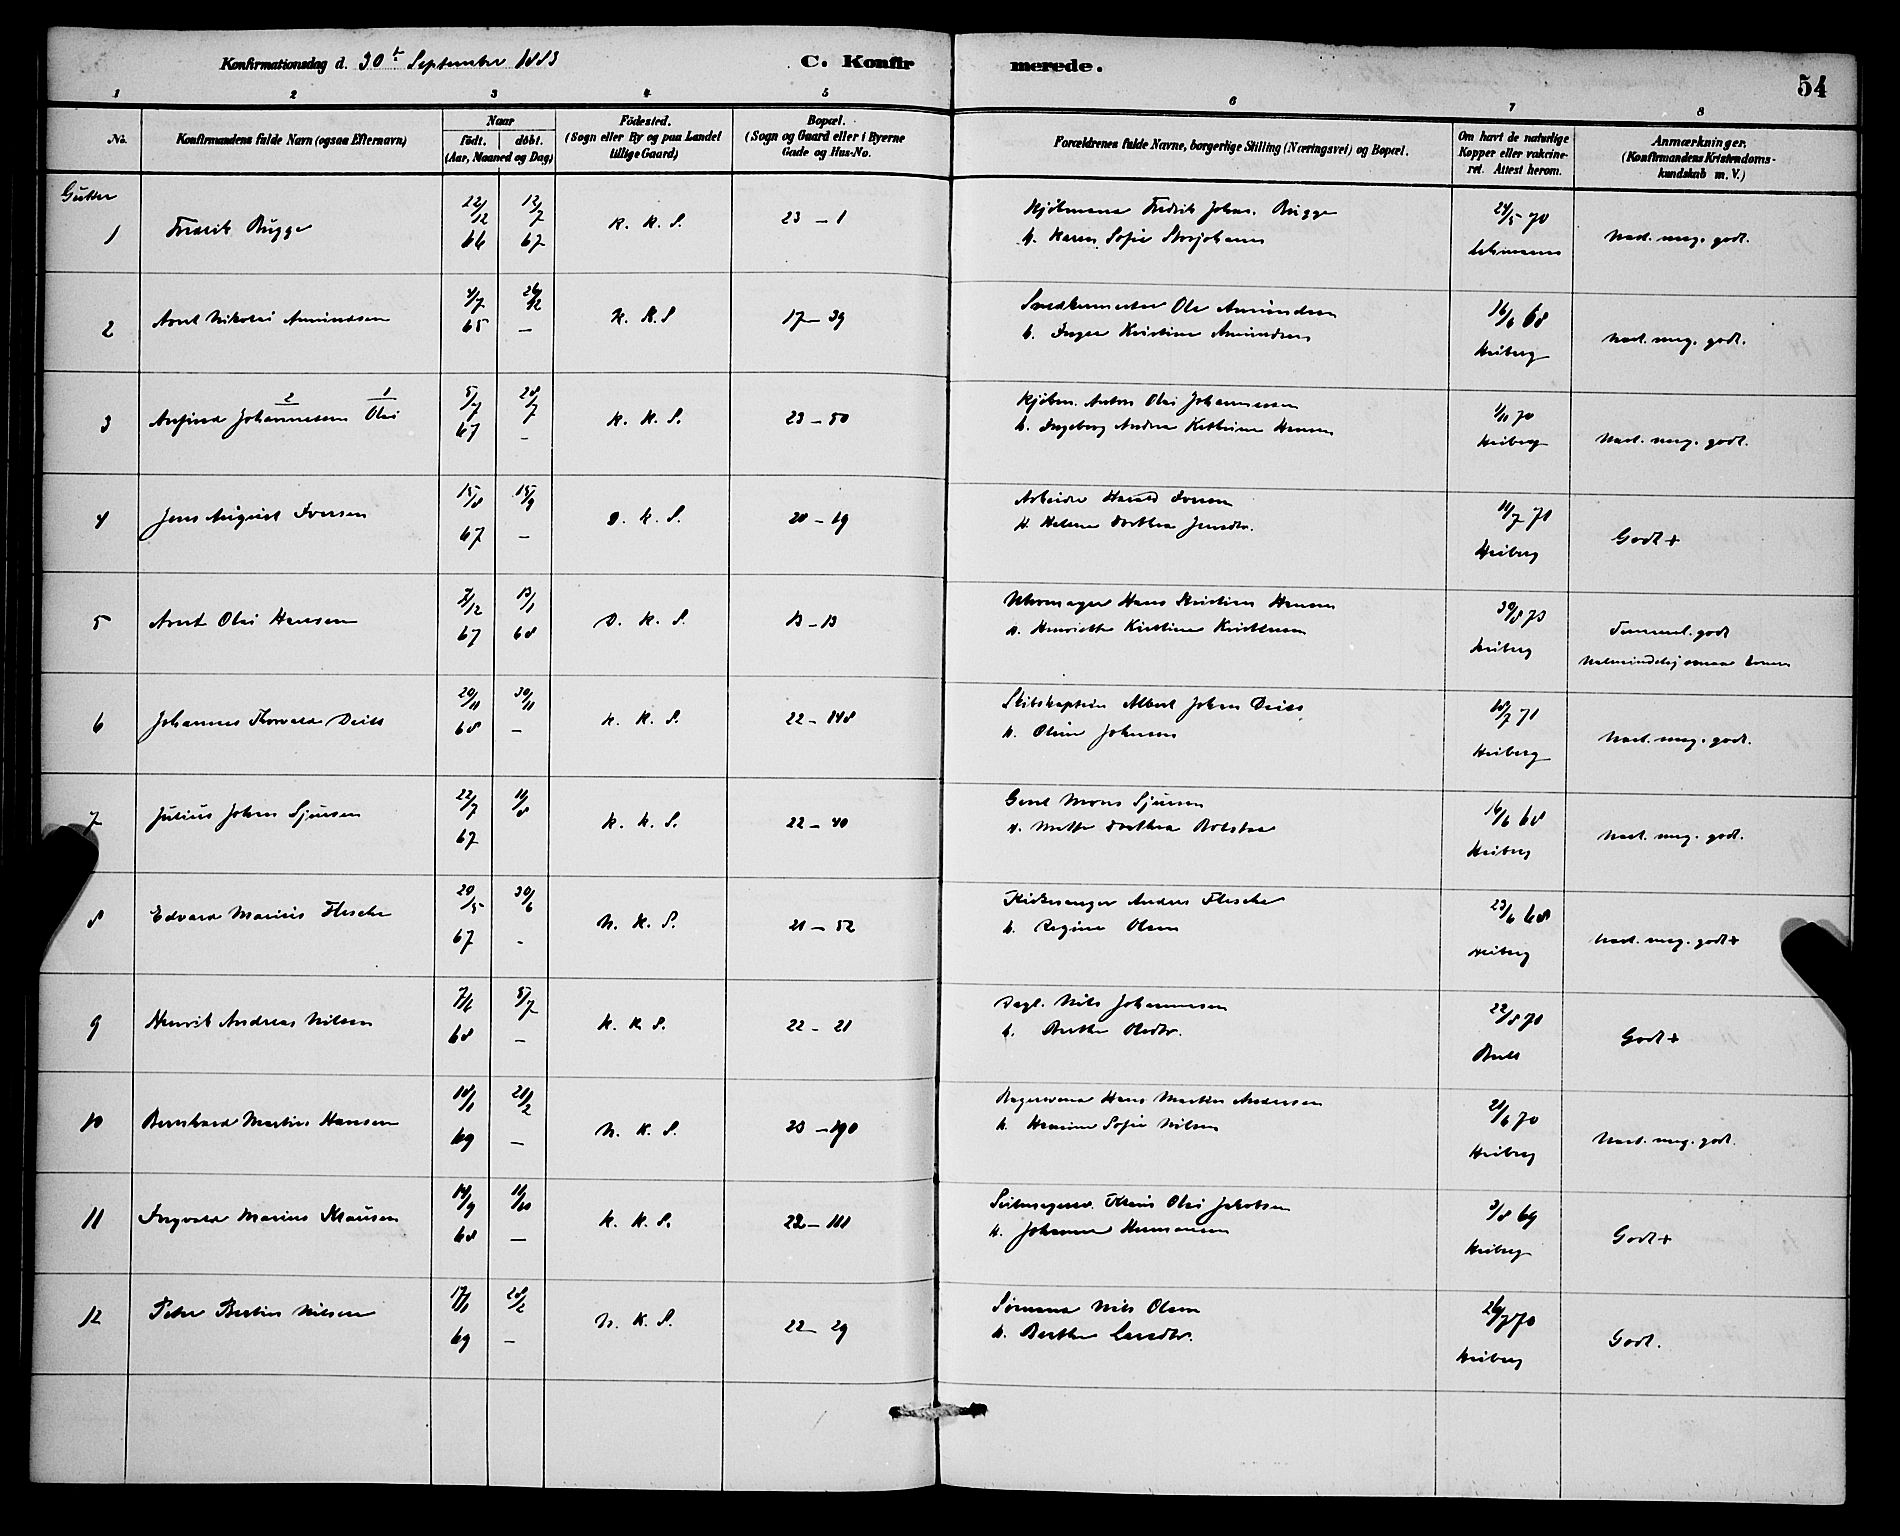 Konfirmationsdag d. 30t September 1883 C. Konfirmerede. 54
1 2 3 4 5 6 7 8
No. Konfirmandens fulde Navn (ogsaa Efternavn) Naar födt. döbt. (Aar, Maaned og Dag) Födested. (Sogn eller By og paa Landet tillige Gaard) Bopæl. (Sogn og Gaard eller i Byerne Gade og Hus-No. Forældrenes fulde Navne, borgerlige Stilling (Næringsvei) og Bopæl. Om havt de naturlige Kopper eller vakcineret. Attest herom. Anmærkninger. (Konfirmandens Kristendomskundskab m. V.)
Gutter
1 Fredrik Brügge 22/12 66 12/7 67 K. K. S. 23 – 1 Kjöbmand Fredrik Johan. Brügge 24/5 70 Nast. meg. godt.
h. Karen Sofie Storjohann Lehmann
2 Arnt Nikolai Amundsen 4/7 65 26/12 – K. K. S 17 – 39 Snedkermester Ole Amundsen 16/6 68 Nast. meg. godt.
h. Inger Kristine Amundsen Heiberg
3 Arfind Johannesen Olai 5/7 67 28/7 – K. K. S. 23 – 50 Kjöbm. Anton Olai Johannesen 1/11 70 Nast. meg. godt.
h. Ingeborg Andrea Kathrine Hansen Heiberg
4 Jens August Iversen 15/8 67 15/9 – D. K. S. 20 – 19 Arbeider Harald Iversen 11/7 71 Godt +
h. Helene Dorthea Jensdtr. Heiberg
5 Arnt Olai Hansen 67 13/1 68 D. K. S. 13 – 13 Uhrmager Hans Kristian Hansen 30/8 73 Temmel. godt
h. Henriette Kirstine Kristensen Heiberg
6 Johannes Thorvald Deiss 20/11 68 30/11 – K. K. S. 22 – 148 Skibskaptein Albert Johan Deiss 18/7 71 Nast. meg. godt.
h. Oline Johnsen Heiberg
7 Julius Johan Sjursen 22/7 67 11/8 K. K. S. 22 – 40 Mons Sjursen 16/6 68 Nast. meg. godt.
h. Mette Dorthea Heiberg
8 Edvard Marius Flesche 20/5 67 30/6 - N. K. S. 21 – 52 Kirkesanger Anders Flesche 23/6 68 Nast. meg. godt +
h. Regine Olsen Heiberg
9 Henrik Andreas Nilsen 7/6 68 5/7 – K. K S. 22 – 21 Dagl. Nils Johannesen 22/8 70 Godt +
h. Berthe Olsdtr.
10 Bernhard Martin Hansen 18/1 69 21/2 – N. K. S. 23 – 190 Bagersvend Hans Martin Andersen 21/6 70 Nast. meg. godt.
h. Sofie Nilsen Heiberg
11 Ingvald Marius Klausen 14/9 68 11/10 – K. K. S. 22 – 111 Klaus Olai Jakobsen 3/8 69 Godt +
h. Johanne Hermansen Heiberg
12 Peter Bertin Nilsen 17/1 69 28/2 – N. K. S. 22 – 29 Sömand Nils Olsen 26/7 70 Godt.
h. Berthe Larsdtr. Heiberg